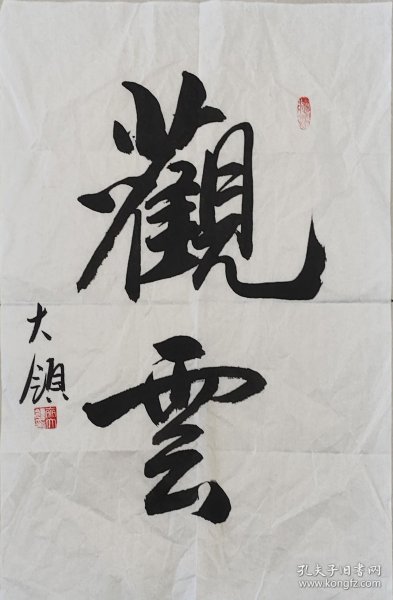 觀雲
大領
孔夫子旧书网
www.kongfz.com